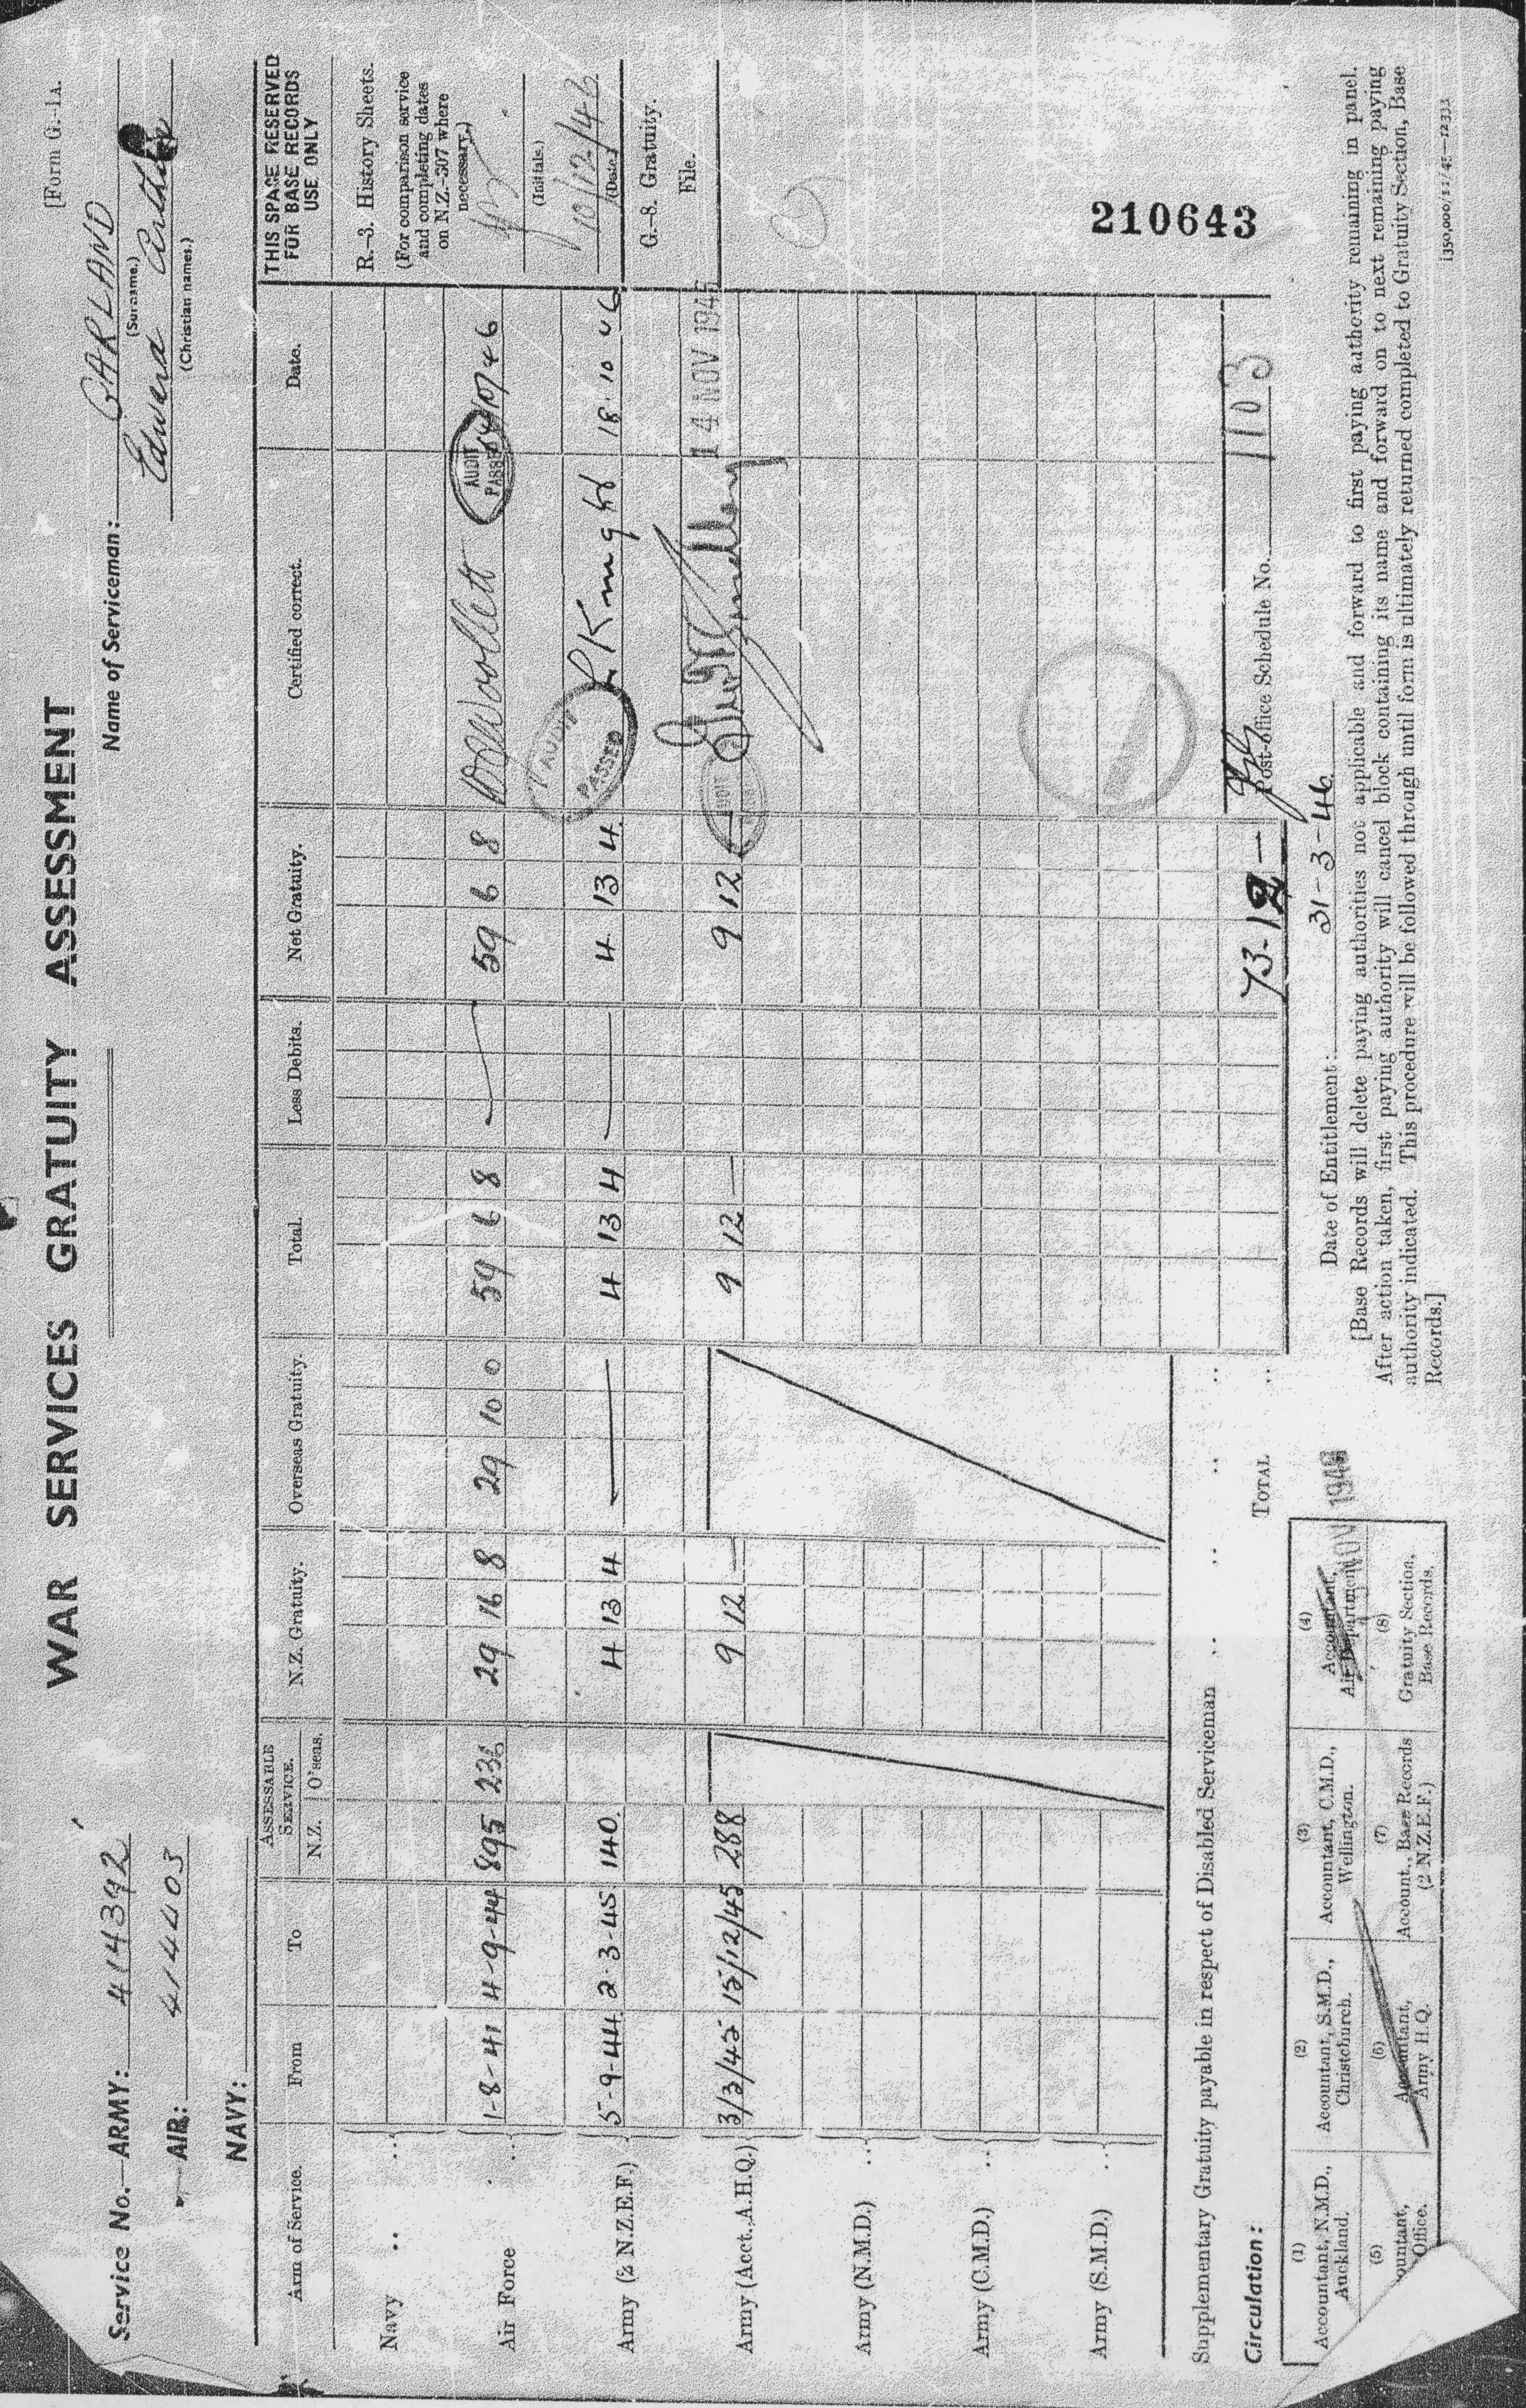 [Form G.-1A.
WAR SERVICES GRATUITY ASSESSMENT
Service No.—ARMY: 414392
AIR: 414403
NAVY:
Name of Serviceman: GARLAND
(Surname.)
Edward Arthur
(Christian names.)
THIS SPACE RESERVED FOR BASE RECORDS USE ONLY
Arm of Service. From To ASSESSABLE SERVICE. N.Z. O'seas. N.Z. Gratuity. Overseas Gratuity. Total. Less Debits. Net Gratuity. Certified correct. Date.
Navy .. ...
Air Force ... 1-8-41 4-9-44 895 236 29 16 8 29 10 0 59 6 8 — 59 6 8 Woollett AUDIT PASSED /10/46
Army (2 N.Z.E.F.) 5-9-44 2-3-45 140 4 13 4 — 4 13 4 — 4 13 4 AUDIT PASSED Knight 18 10 46
Army (Acct., A.H.Q.) 3/3/45 15/12/45 288 9 12 — 9 12 — 9 12 — AUDIT 14 NOV 1946
Army (N.M.D.) ...
Army (C.M.D.) ...
Army (S.M.D.) ...
R.-3. History Sheets.
(For comparison service
and completing dates
on N.Z.-307 where
necessary.)
(Initials.)
10/12/46
(Date.)
G.-8. Gratuity.
File.
210643
Supplementary Gratuity payable in respect of Disabled Serviceman .. .. .. ..
Circulation: TOTAL .. 73-12 — Post-office Schedule No. 1103
(1) Accountant, N.M.D., Auckland.
(2) Accountant, S.M.D., Christchurch.
(3) Accountant, C.M.D., Wellington.
(4) Accountant, Air Department
NOV 1946
(5) ountant, Office.
(6) Accountant, Army H.Q.
(7) Account., Base Records (2 N.Z.E.F.)
(8) Gratuity Section, Base Records.
Date of Entitlement: 31-3-46
[Base Records will delete paying authorities not applicable and forward to first paying authority remaining in panel.
After action taken, first paying authority will cancel block containing its name and forward on to next remaining paying
authority indicated. This procedure will be followed through until form is ultimately returned completed to Gratuity Section, Base
Records.]
[350,000/11/45—12333